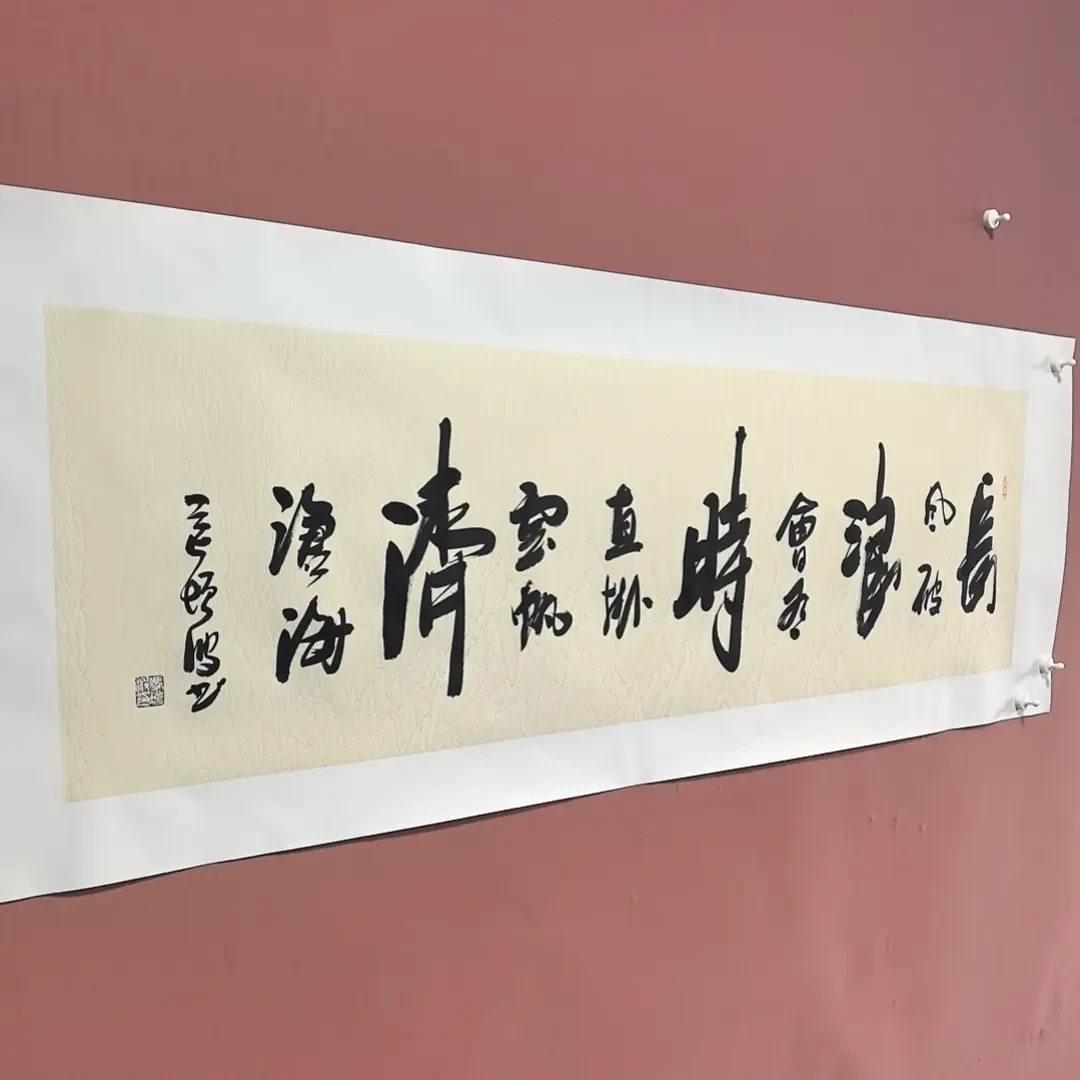 長
風破
浪
會有
時
直掛
雲帆
濟
滄海